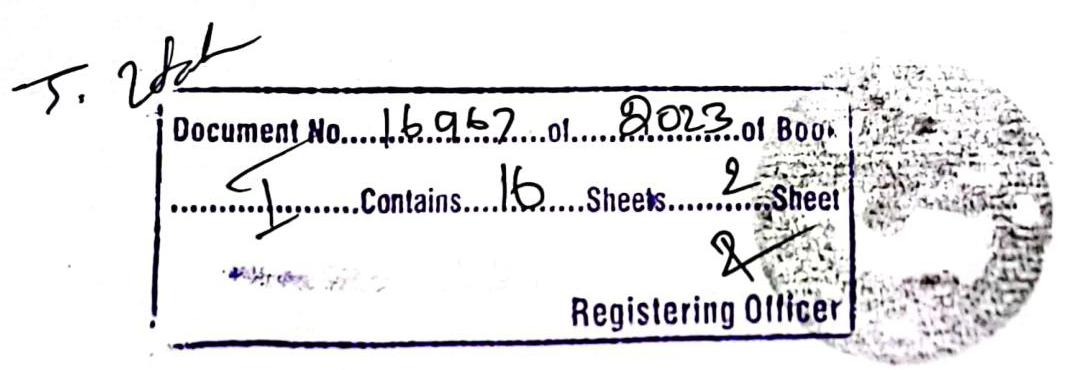 Document No....16967....of.....2023.of Book
....................I....................Contains....16.....Sheets...........2...........Sheet
Registering Officer